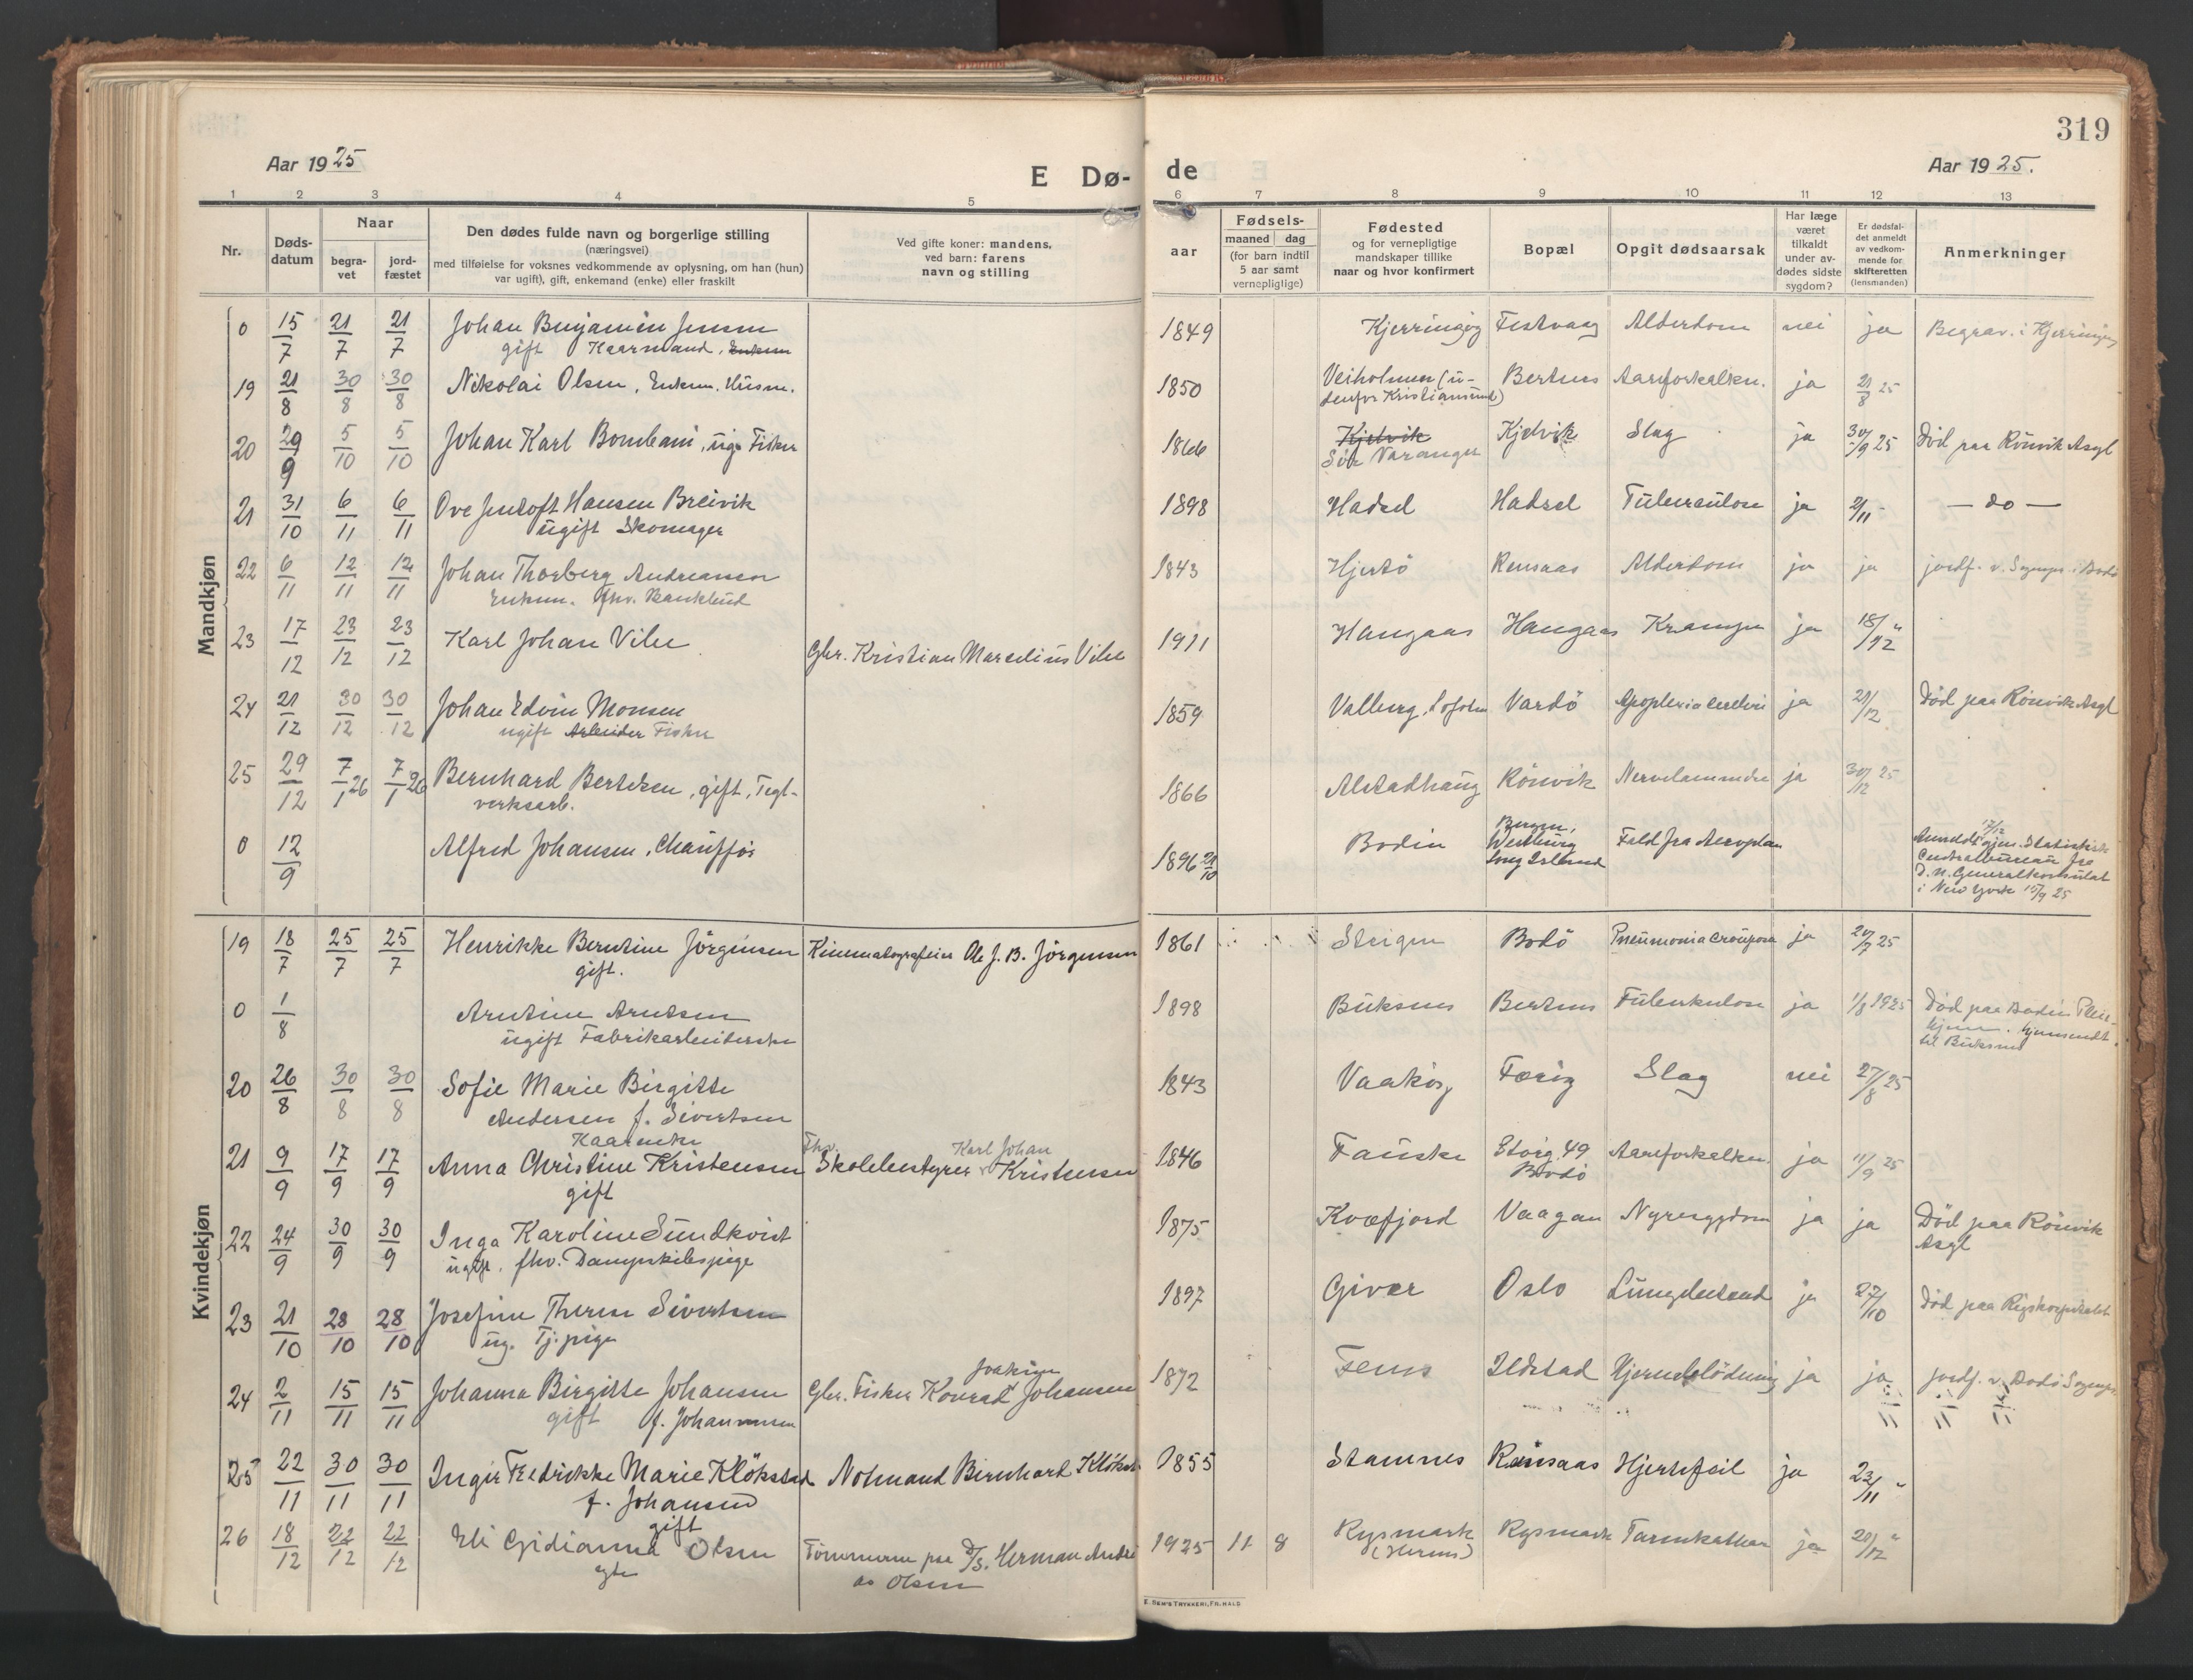 319
Aar 1925
E Dø-
de
Aar 1925.
1 2 3 4 5 6 7 8 9 10 11 12 13
Nr.
Døds-
datum
Naar
begra-
vet
jord-
fæstet
Den dødes fulde navn og borgerlige stilling
(næringsvei)
med tilføielse for voksnes vedkommende av oplysning, om han (hun)
var ugift), gift, enkemand (enke) eller fraskilt
Ved gifte koner: mandens,
ved barn: farens
navn og stilling
aar
Fødsels-
maaned dag
(for barn indtil
5 aar samt
vernepligtige)
Fødested
og for vernepligtige
mandskaper tillike
naar og hvor konfirmert
Bopæl
Opgit dødsaarsak
Har læge
været
tilkaldt
under av-
dødes sidste
sygdom?
Er dødsfal-
det anmeldt
av vedkom-
mende for
skifteretten
(lensmanden)
Anmerkninger
Mandkjøn
0 15/7 21/7 21/7 Johan Benjamin Jensen 1849 Kjerringøy Festvaag Alderdom nei ja Begrav. i Kjerringøy
gift Kaarmand, Enkem
19 21/8 30/8 30/8 Nikolai Olsen, Enkem. Husm. 1850 Veiholmen (u- Bertnes Aareforkalkn. ja 21/8 25
denfor Kristiansund)
20 29/9 5/10 5/10 Johan Karl Bombani, ug. Fisker 1866 Kjelvik Kjelvik Slag ja 30/9 25 Död paa Rönvik Asyl
Sör Varanger
21 31/10 6/11 6/11 Ove Jentoft Hansen Breivik 1898 Hadsel Hadsel Tuberculose ja 2/11 - — do —
ugift Skomager
22 6/11 12/11 12/11 Johan Thorberg Andreassen 1843 Hjertö Rensaas Alderdom ja ja jordf. v. Sognepr. i Bodö
Enkem. fhv. Bankbud
23 17/12 23/12 23/12 Karl Johan Vilu Gbr. Kristian Marcelius Vilu 1911 Haugaas Haugaas Krampe ja 18/12 "
24 21/12 30/12 30/12 Johan Edvin Monsen 1859 Valberg, Lofoten Vardö Apoplexia cerebri ja 21/12 Död paa Rönvik Asyl
ugift Arbeider Fisker
25 29/12 7/1 26 7/1 26 Bernhard Bertsen, gift, Tegl- 1866 Alstadhaug Rönvik Nervelammelse ja 30/12 25
verksarb.
0 12/9 Alfred Johansen, Chauffør 1896 21/10 Bodin Westbury Fald fra Aeroplan
Long Island
Anmeldt 17/12 gjen. Statistisk
Centralbureau fra
D. N. Generalkonsulat
i New York 15/9 25
Kvindekjøn
19 18/7 25/7 25/7 Henrikke Berntine Jörgensen Kinematografeier Ole J. B. Jörgensen 1861 Steigen Bodö Pneumonia crouposa ja 20/7 25
gift.
0 1/8 Arntine Arntsen 1898 Buksnes Bertnes Tuberkulose ja 1/8 1925 Död paa Bodin Pleie-
ugift Fabrikarbeiderske hjem. hjemsendt
til Buksnes
20 26/8 30/8 30/8 Sofie Marie Birgitte 1843 Vaakøy Förøy Slag nei 27/8 25
Andersen f. Sivertsen
Kaarenke
21 9/9 17/9 17/9 Anna Christine Kristensen Fhv. Skolebestyrer Karl Johan Kristensen 1846 Fauske Storg. 49 Aareforkalkn. ja 11/9 25
gift Bodö
22 24/9 30/9 30/9 Inga Karoline Sundkvist 1875 Kvæfjord Vaagan Nyresygdom ja ja Död paa Rönvik
ugift. fhv. Dampskibspige Asyl
23 21/10 28/10 28/10 Josefine Therese Sivertsen 1897 Givær Oslo Lungebetænd ja 22/10 Död paa Rigshospitalet
ug. Tj.pige
24 2/11 15/11 15/11 Johanna Birgitte Johansen Gbr. Fisker Konrad Joakim Johansen 1872 Fenes Ildstad Hjerneblödning ja ja jordf. v. Bodö Sognepr.
gift f. Johannesen
25 22/11 30/11 30/11 Inger Fredrikke Marie Klökstad Notmand Bernhard Klökst 1855 Stamnes Rensaas Hjertefeil ja 23/11 "
f. Johansen
gift
26 18/12 22/12 22/12 Eli Gidianna Olsen Tömmerm. paa D/S. Herman Andre 1925 11 8 Rysmark Rysmark Tarmkatar ja 20/12 "
egte as Olsen (Hernes)
E. SEM'S TRYKKERI, FR.HALD